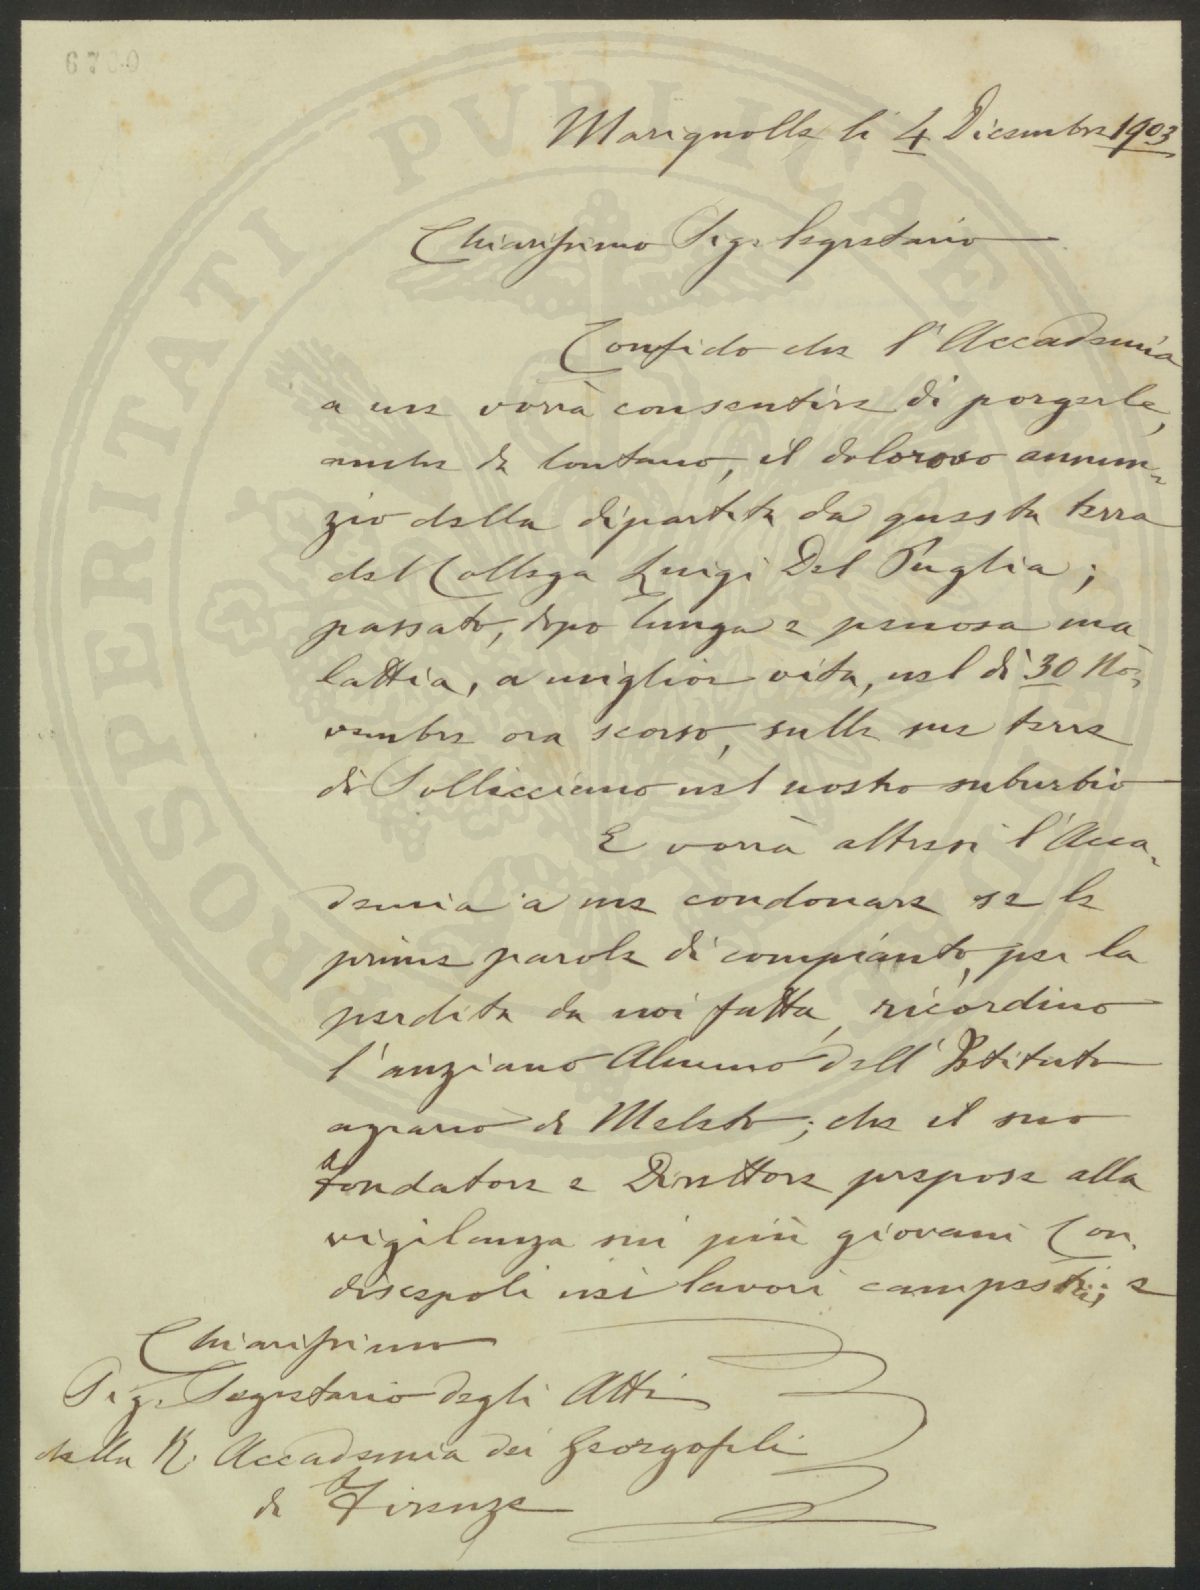 Marignolle li 4 Dicembre 1903
Chiarissimo Sigr Segretario
Confido che l'Accademia
a me vorrà consentire di porgerle,
anche da lontano, il doloroso annun-
zio della dipartita da questa terra
del Collega Luigi Del Puglia;
passato, dopo lunga e penosa ma
lattia, a miglior vita, nel dì 30 No-
vembre ora scorso, nelle sue terre
di Sollicciano nel nostro suburbio
E vorrà altresì l'Acca-
demia a me condonare se le
prime parole di compianto, per la
perdita da noi fatta, ricordino
l'anziano Alunno dell'Istituto
agrario di Meleto; che il suo
fondatore e Direttore prepose alla
vigilanza sui più giovani Con-
discepoli nei lavori campestri; e
Chiarissimo
Sigr Segretario degli Atti
della R. Accademia dei Georgofili
di Firenze
PROSPERITATI PVBLICAE